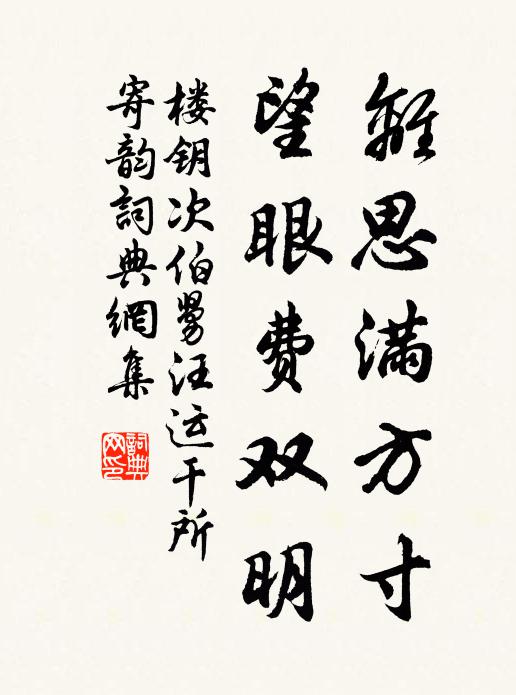 離思满方寸
望眼費双明
楼钥次伯舅汪运干所
寄韵詞典網集
詞典
网印